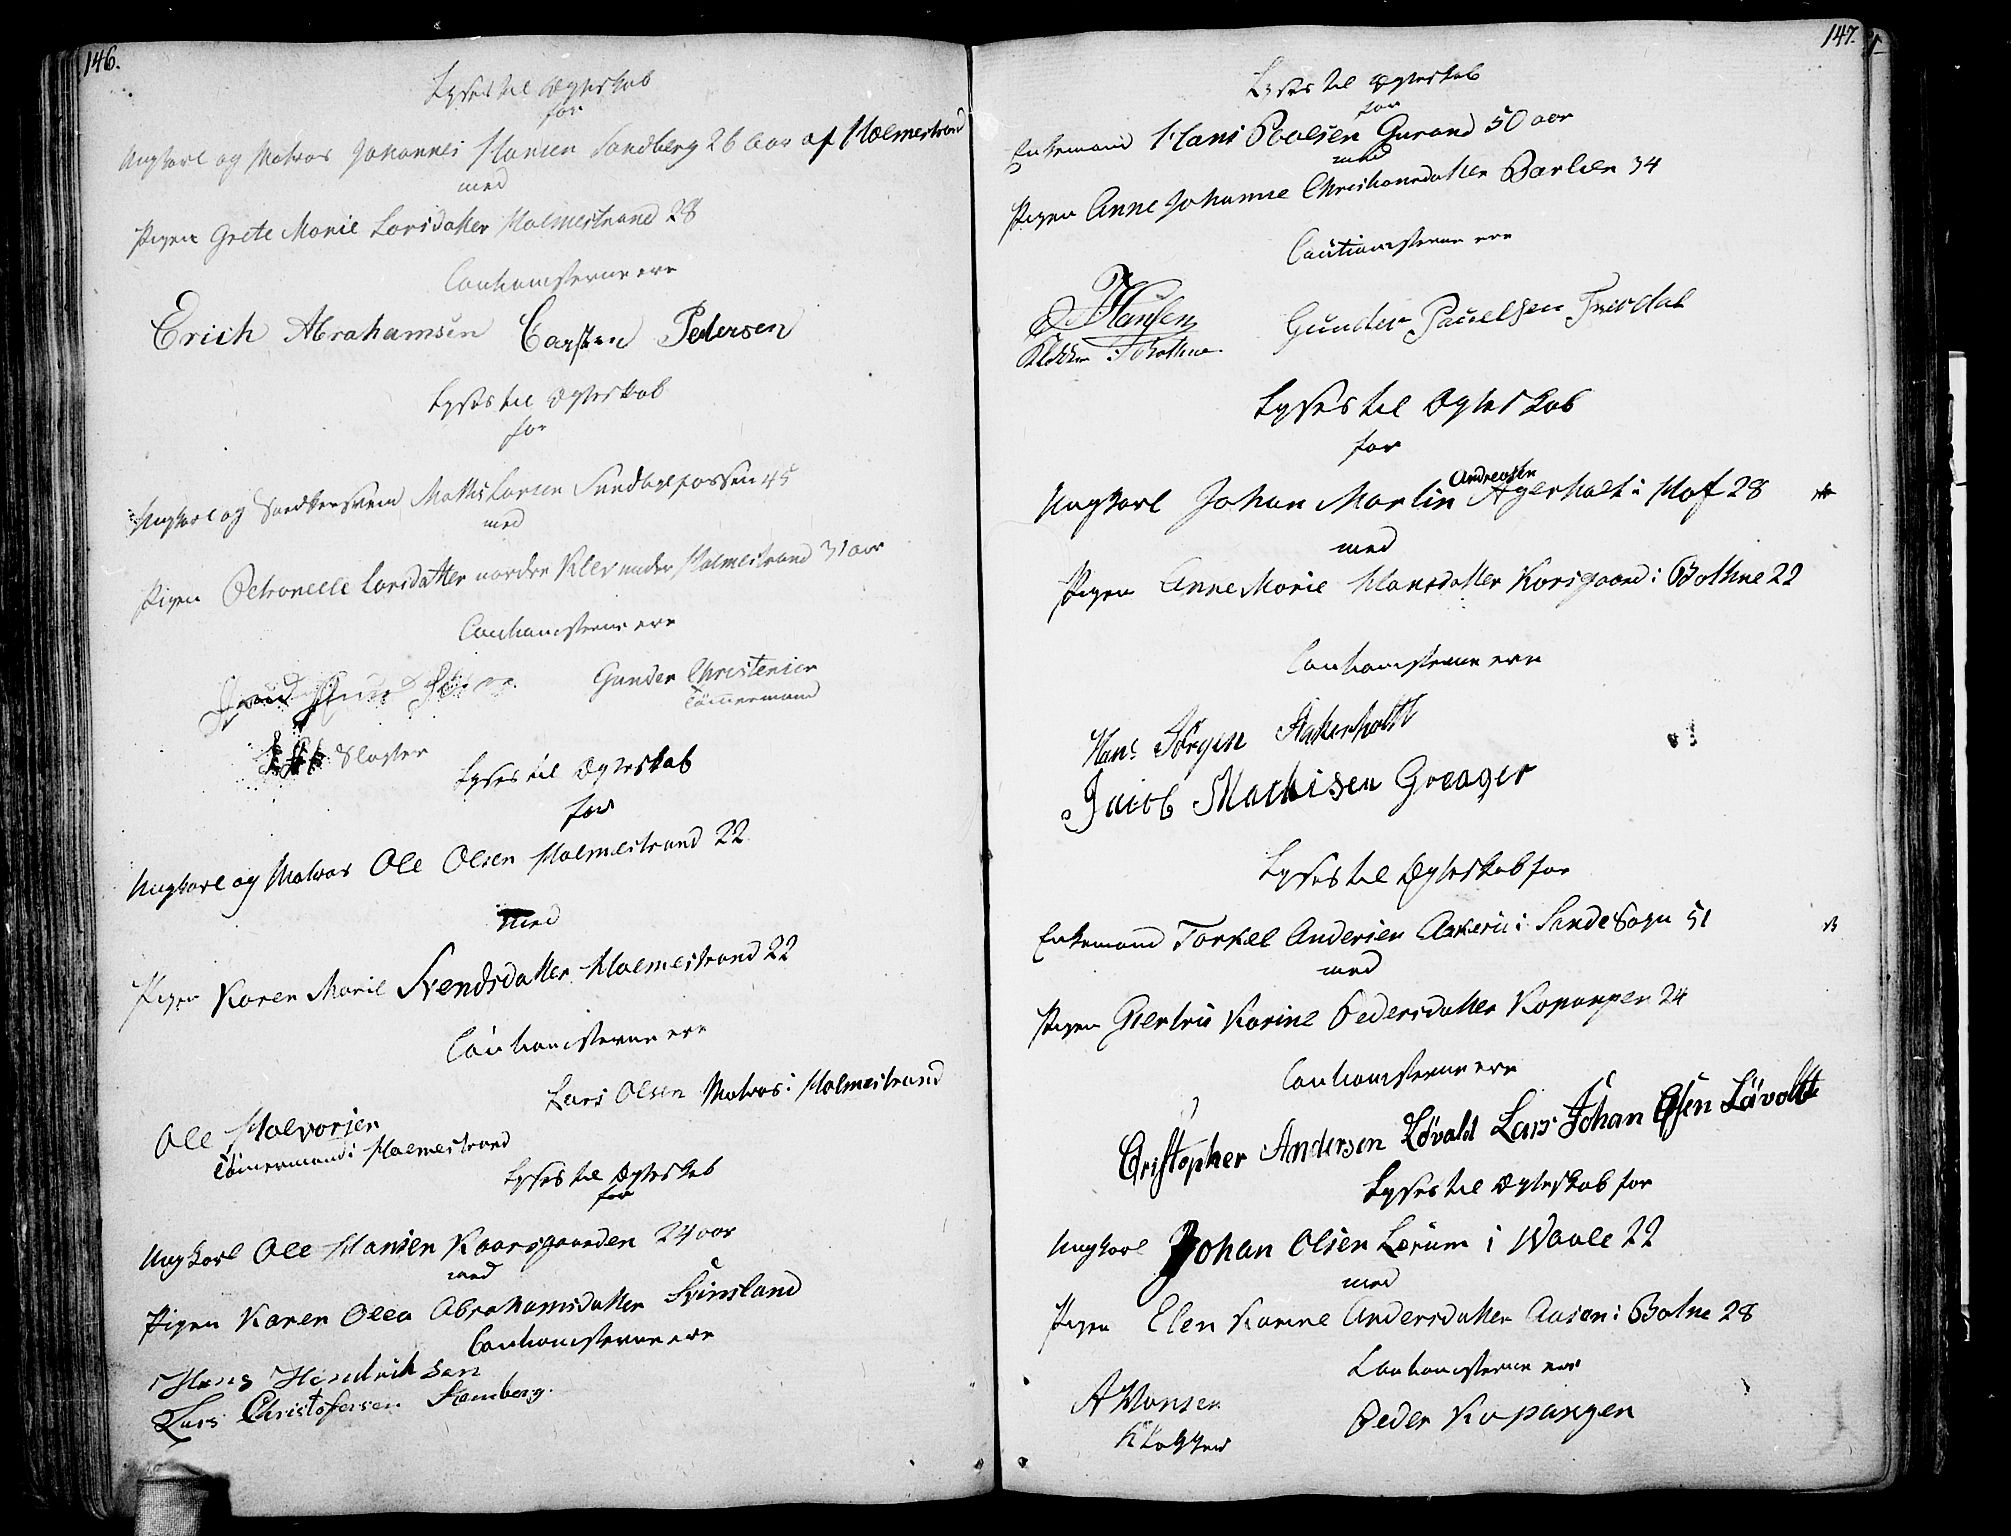 146.
Lyses til Ægteskab
for
Ungkarl og Matros Johannes Hansen Sandberg 26 Aar af Holmestrand
med
Pigen Grete Marie Larsdatter Holmestrand 28
Cautionisterne ere
Erich Abrahamsen Carsten Pedersen
Lyses til Ægteskab
for
Ungkarl og Mathis Larsen 45
med
Pigen Petronelle Larsdatter nordre Klev under Holmestrand 31 aar
Cautionisterne ere
Gunder Christensen
Tömmermand
Slagter
Lyses til Ægteskab
for
Ungkarl og Matros Ole Olsen Holmestrand 22
med
Pigen Karen Marie Svendsdatter Holmestrand 22
Cautionisterne ere
Lars Olsen Matros i Holmestrand
Ole Halvorsen
Tömermand i Holmestrand
Lyses til Ægteskab
for
Ungkarl Ole Hansen Kaarsgaarden 24 aar
med
Pigen Karen Olea Abrahamsdatter Svinsland
Cautionisterne ere
Hans Hendrichsen
Lars Christofersen Hamberg.
147.
Lyses til Ægteskab
for
Enkemand Hans Povelsen Gurand 50 aar
med
Pigen Anne Johanne Christiansdatter Barlien 34
Cautionisterne ere
JHansen Gunder Pauelsen
Klokker i Bothne.
Lyses til Ægteskab
for
Andreasen
Ungkarl Johan Martin Agerholt i Hof 28
med
Pigen Anne Marie Hansdatter Korsgaard i Bothne 22
Cautionisterne ere
Hans Jörgen Hakerholtt
Jacob Mathisen Greager
Lyses til Ægteskab for
Enkemand Torkel Andersen Askerü i Sande Sogn 51
med
Pigen Giertrü Karine Pedersdatter Kopangen 24
Cautionisterne ere
Cristopher Andersen Lövald Lars Johan Olsen Lövoldt
Lyses til Ægteskab for
Ungkarl Johan Olsen Lerum i Waale 22
med
Pigen Elen Karine Andersdatter Aasen i Botne 28
Cautionisterne ere
A Hansen Peder Kopangen
Klokker